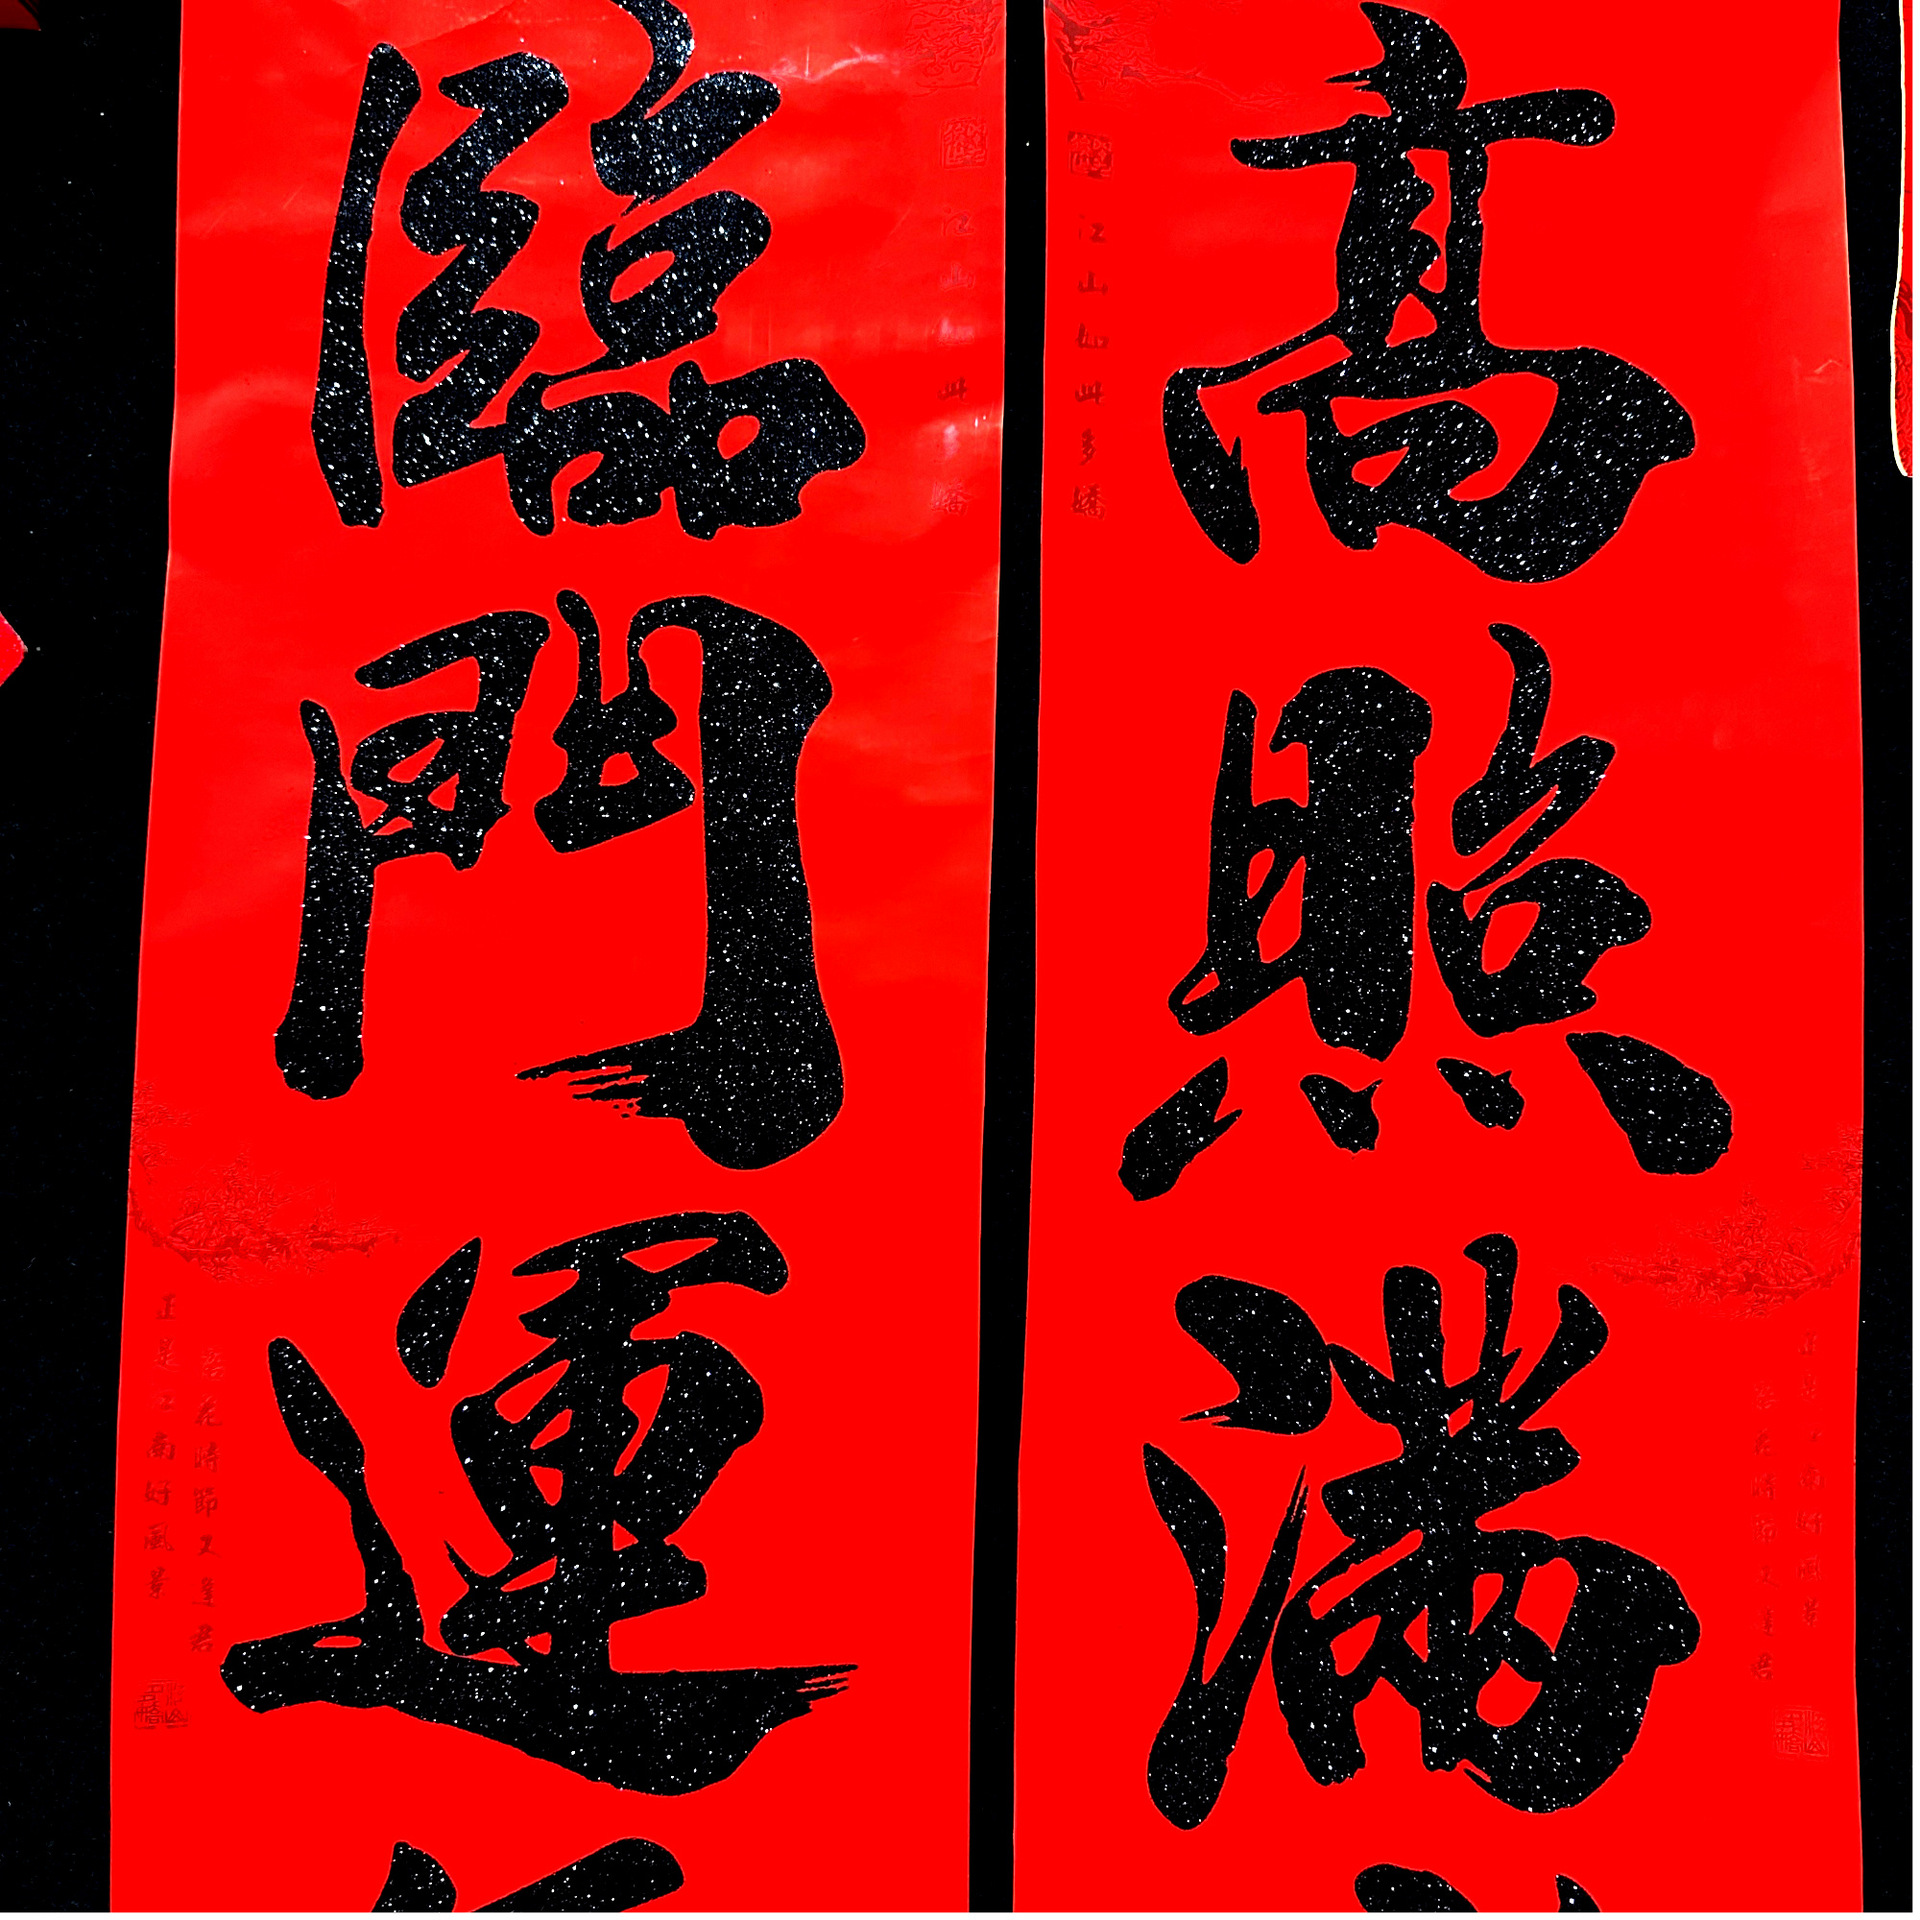 高照滿
江山如此多嬌
正是江南好風景
落花時節又逢君
臨門運
江山如此多嬌
正是江南好風景
落花時節又逢君